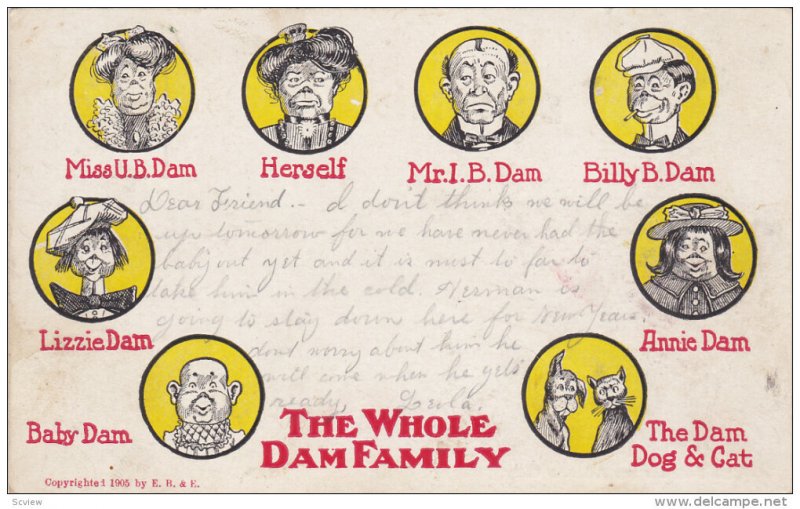 Miss U.B. Dam
Herself
Mr. I. B. Dam
Billy B. Dam
Dear Friend.- I don't think we will be
up tomorrow for we have never had the
baby out yet and it is must to far to
take him in the cold Herman is
going to stay down here for New Years.
dont worry about him he
will come when he gets
ready,
Lizzie Dam
Annie Dam
Baby Dam
The Whole
Dam Family
The Dam
Dog & Cat
Copyrighted 1905 by E. B. & E.
Scview
delcampe.net